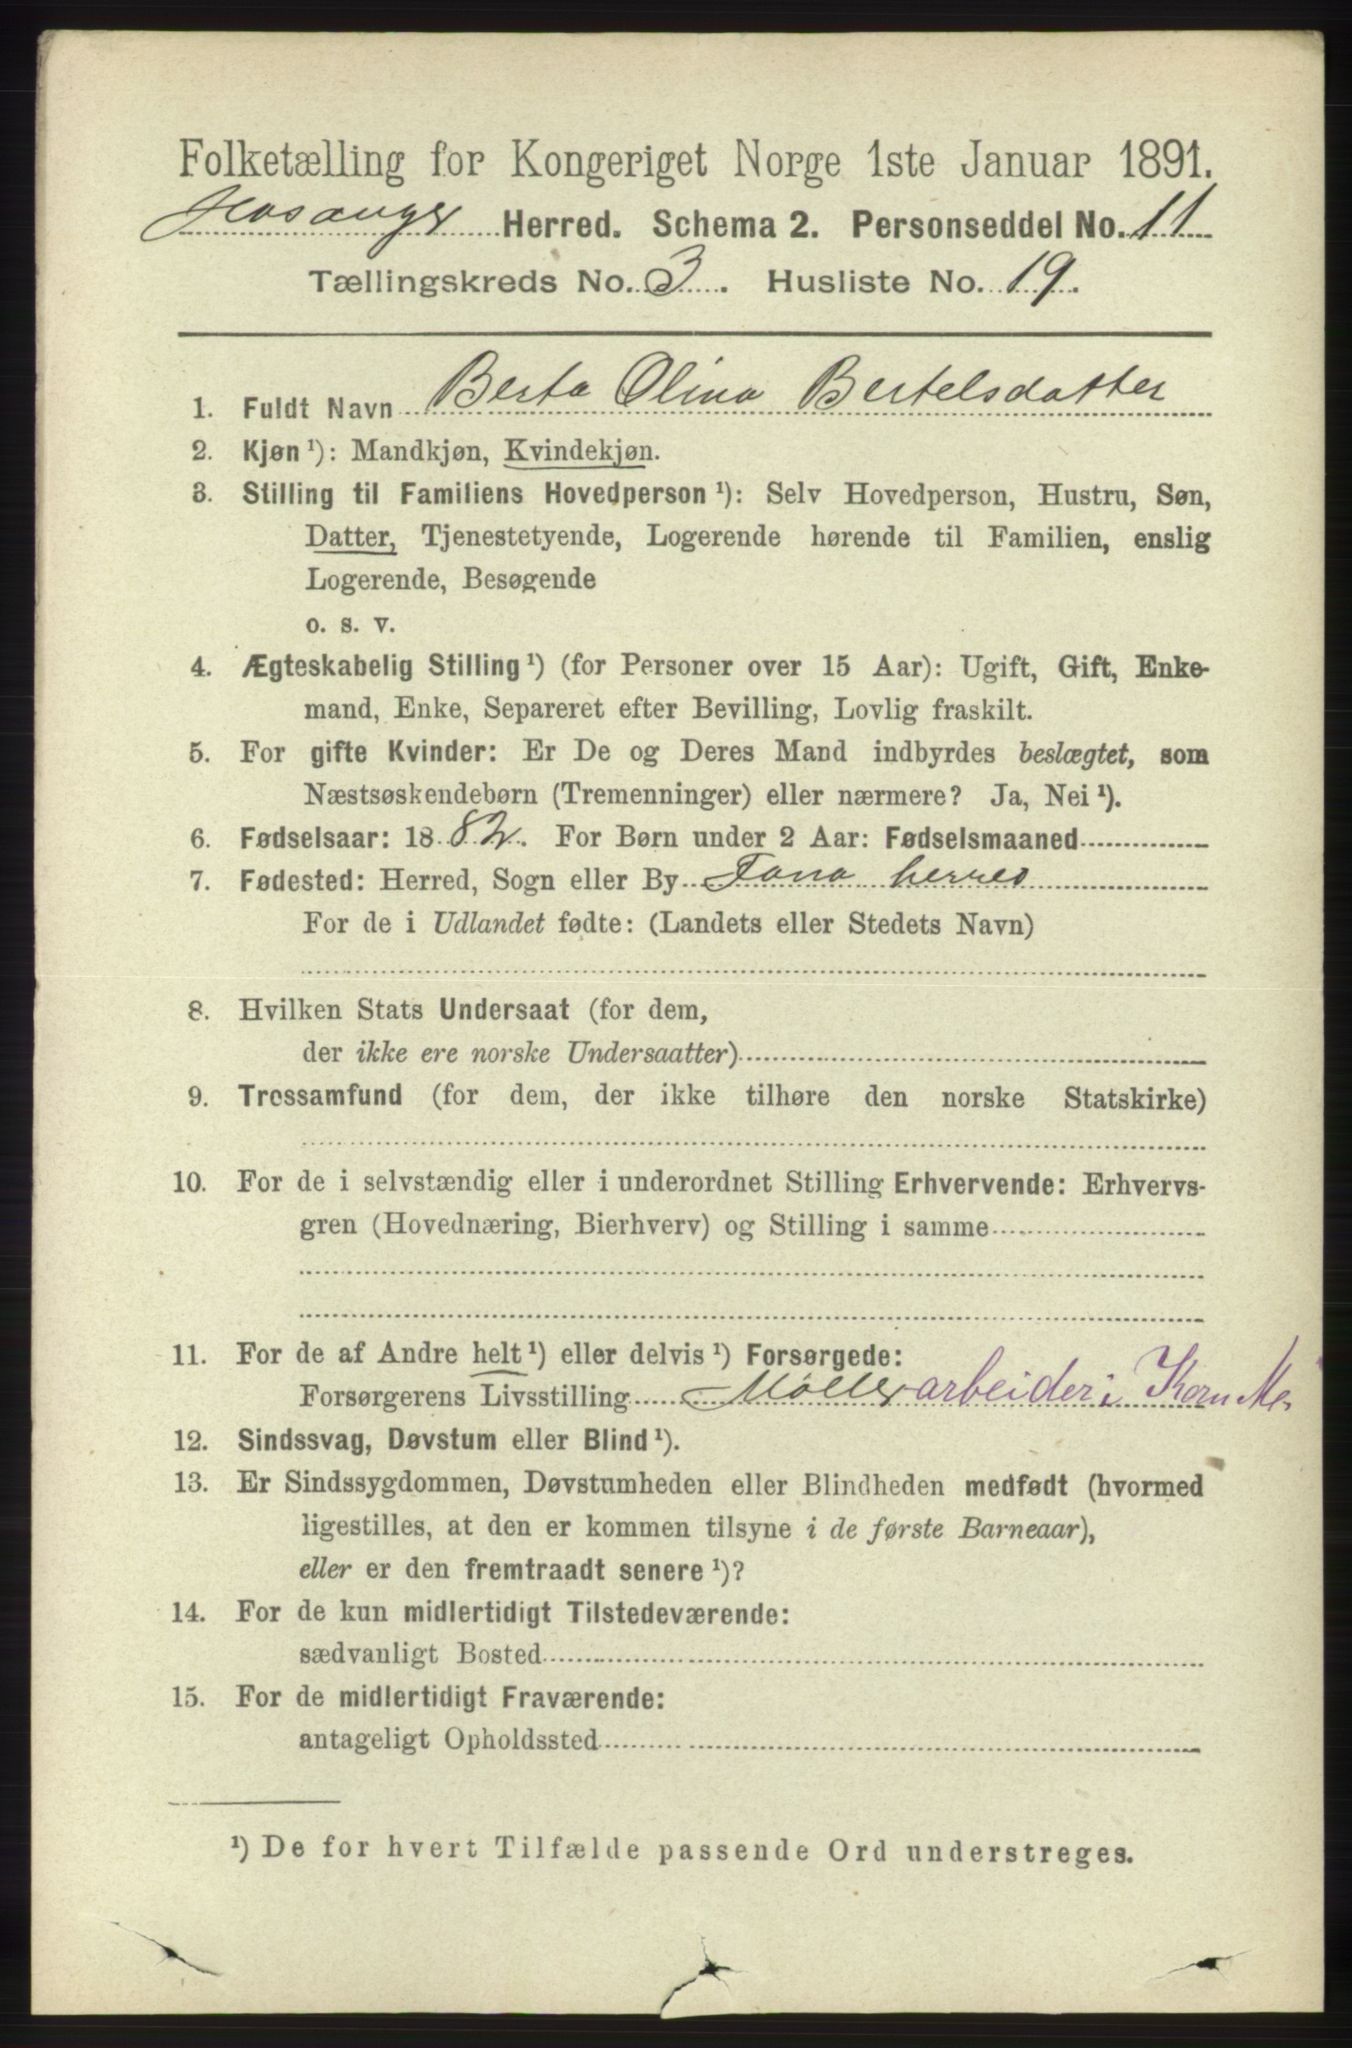 Folketælling for Kongeriget Norge 1ste Januar 1891.
Hosanger Herred. Schema 2. Personseddel No. 11
Tællingskreds No. 3. Husliste No. 19.
1. Fuldt Navn Berta Olina Bertelsdatter
2. Kjøn ¹): Mandkjøn, Kvindekjøn.
3. Stilling til Familiens Hovedperson ¹): Selv Hovedperson, Hustru, Søn,
Datter, Tjenestetyende, Logerende hørende til Familien, enslig
Logerende, Besøgende
o. s. v.
4. Ægteskabelig Stilling ¹) (for Personer over 15 Aar): Ugift, Gift, Enke-
mand, Enke, Separeret efter Bevilling, Lovlig fraskilt.
5. For gifte Kvinder: Er De og Deres Mand indbyrdes beslægtet, som
Næstsøskendebørn (Tremenninger) eller nærmere? Ja, Nei ¹).
6. Fødselsaar: 1882. For Børn under 2 Aar: Fødselsmaaned
7. Fødested: Herred, Sogn eller By Fana herred
For de i Udlandet fødte: (Landets eller Stedets Navn)
8. Hvilken Stats Undersaat (for dem,
der ikke ere norske Undersaatter)
9. Trossamfund (for dem, der ikke tilhøre den norske Statskirke)
10. For de i selvstændig eller i underordnet Stilling Erhvervende: Erhvervs-
gren (Hovednæring, Bierhverv) og Stilling i samme
11. For de af Andre helt ¹) eller delvis ¹) Forsørgede:
Forsørgerens Livsstilling Møllearbeider i Korn Mø
12. Sindssvag, Døvstum eller Blind ¹).
13. Er Sindssygdommen, Døvstumheden eller Blindheden medfødt (hvormed
ligestilles, at den er kommen tilsyne i de første Barneaar),
eller er den fremtraadt senere ¹)?
14. For de kun midlertidigt Tilstedeværende:
sædvanligt Bosted
15. For de midlertidigt Fraværende:
antageligt Opholdssted
¹) De for hvert Tilfælde passende Ord understreges.